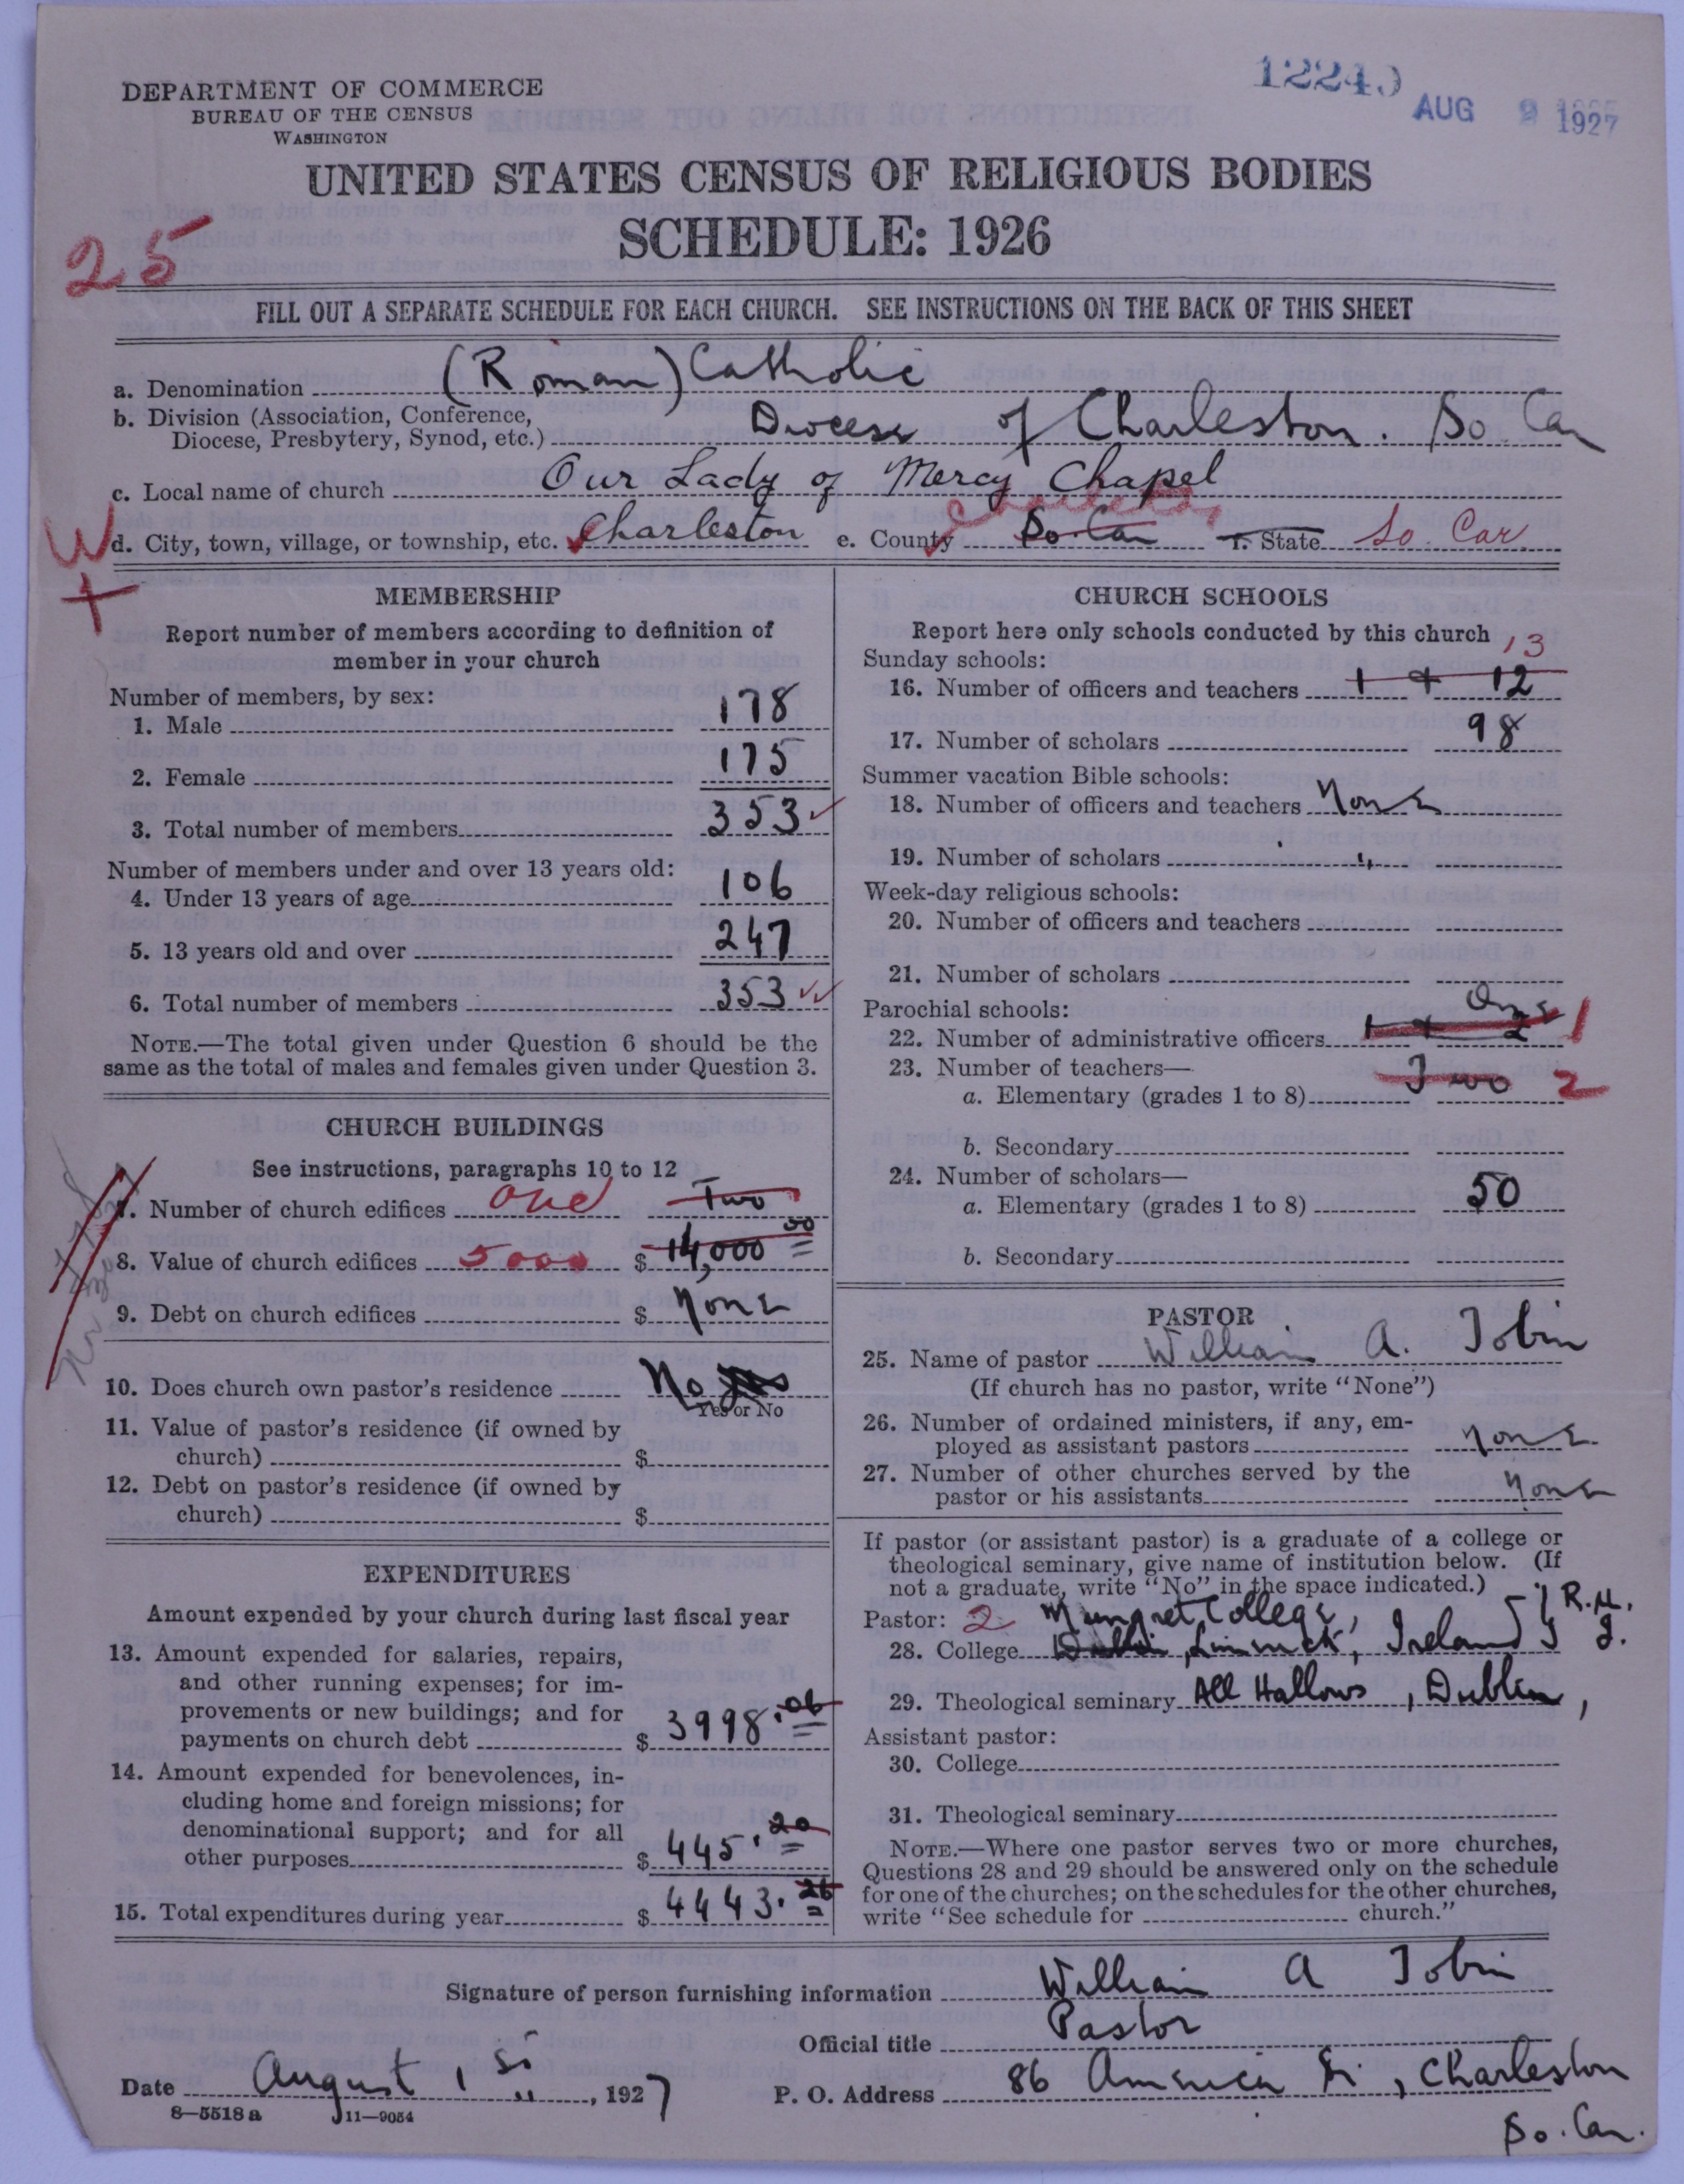 DEPARTMENT OF COMMERCE
BUREAU OF THE CENSUS
WASHINGTON
AUG 1927
UNITED STATES CENSUS OF RELIGIOUS BODIES
SCHEDULE: 1926
25
FILL OUT A SEPARATE SCHEDULE FOR EACH CHURCH. SEE INSTRUCTIONS ON THE BACK OF THIS SHEET
a. Denomination (Roman) Catholic
b. Division (Association, Conference,
Diocese, Presbytery, Synod, etc.) Diocese of Charleston. So. Car
c. Local name of church Our Lady of Mercy Chapel
Charleston
W d. City, town, village, or township, etc. Charleston e. County So. Car f. State So. Car.
+
MEMBERSHIP
Report number of members according to definition of
member in your church
Number of members, by sex:
1. Male 178
2. Female 175
3. Total number of members 353
Number of members under and over 13 years old:
4. Under 13 years of age 106
5. 13 years old and over 247
6. Total number of members 353
NOTE.—The total given under Question 6 should be the
same as the total of males and females given under Question 3.
CHURCH BUILDINGS
See instructions, paragraphs 10 to 12
7. Number of church edifices one Two
8. Value of church edifices 5000 $ 14,000 00
9. Debt on church edifices $ None
10. Does church own pastor's residence No
Yes or No
11. Value of pastor's residence (if owned by
church) $
12. Debt on pastor's residence (if owned by
church) $
EXPENDITURES
Amount expended by your church during last fiscal year
13. Amount expended for salaries, repairs,
and other running expenses; for im-
provements or new buildings; and for
payments on church debt $ 3998.06
14. Amount expended for benevolences, in-
cluding home and foreign missions; for
denominational support; and for all
other purposes $ 445.20
15. Total expenditures during year $ 4443.26
CHURCH SCHOOLS
Report here only schools conducted by this church
Sunday schools: 13
16. Number of officers and teachers 1 + 12
17. Number of scholars 98
Summer vacation Bible schools:
18. Number of officers and teachers None
19. Number of scholars "
Week-day religious schools:
20. Number of officers and teachers
21. Number of scholars
Parochial schools: One
22. Number of administrative officers 1 + 2 1
23. Number of teachers—
a. Elementary (grades 1 to 8) Two 2
b. Secondary
24. Number of scholars—
a. Elementary (grades 1 to 8) 50
b. Secondary
PASTOR
25. Name of pastor William A. Tobin
(If church has no pastor, write "None")
26. Number of ordained ministers, if any, em-
ployed as assistant pastors None
27. Number of other churches served by the
pastor or his assistants None
If pastor (or assistant pastor) is a graduate of a college or
theological seminary, give name of institution below. (If
not a graduate, write "No" in the space indicated.)
Pastor: 2 Mungret College,
28. College Limerick, Ireland
29. Theological seminary All Hallows, Dublin,
Assistant pastor:
30. College
31. Theological seminary
NOTE.—Where one pastor serves two or more churches,
Questions 28 and 29 should be answered only on the schedule
for one of the churches; on the schedules for the other churches,
write "See schedule for church."
Signature of person furnishing information William A Tobin
Official title Pastor
Date August 1st, 1927 P. O. Address 86 America St, Charleston
So. Car.
8—5518 a 11—9054